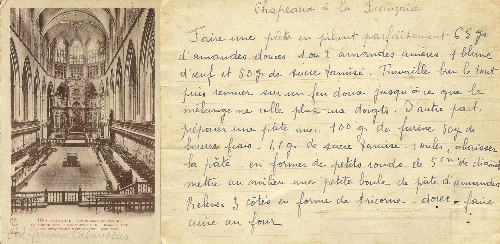 Chapeaux à la Française
Faire une pâte en pilant parfaitement 65 grs
d'amandes douces 1 ou 2 amandes amères 1 blanc
d'œuf et 50 gr de sucre tamisé. Travailler bien le tout
puis remuer sur un feu doux jusqu'à ce que le
mélange ne colle plus aux doigts. D'autre part
préparer une pâte avec 100 gr de farine 50gr de
beurre frais - gr de sucre tamisé - abaisser
la pâte - en former de petits ronds de 5 cm de diamèt
mettre au milieu une petite boule de pâte d'amande
Relever 3 côtés en forme de tricorne - dorer - faire
cuire au four